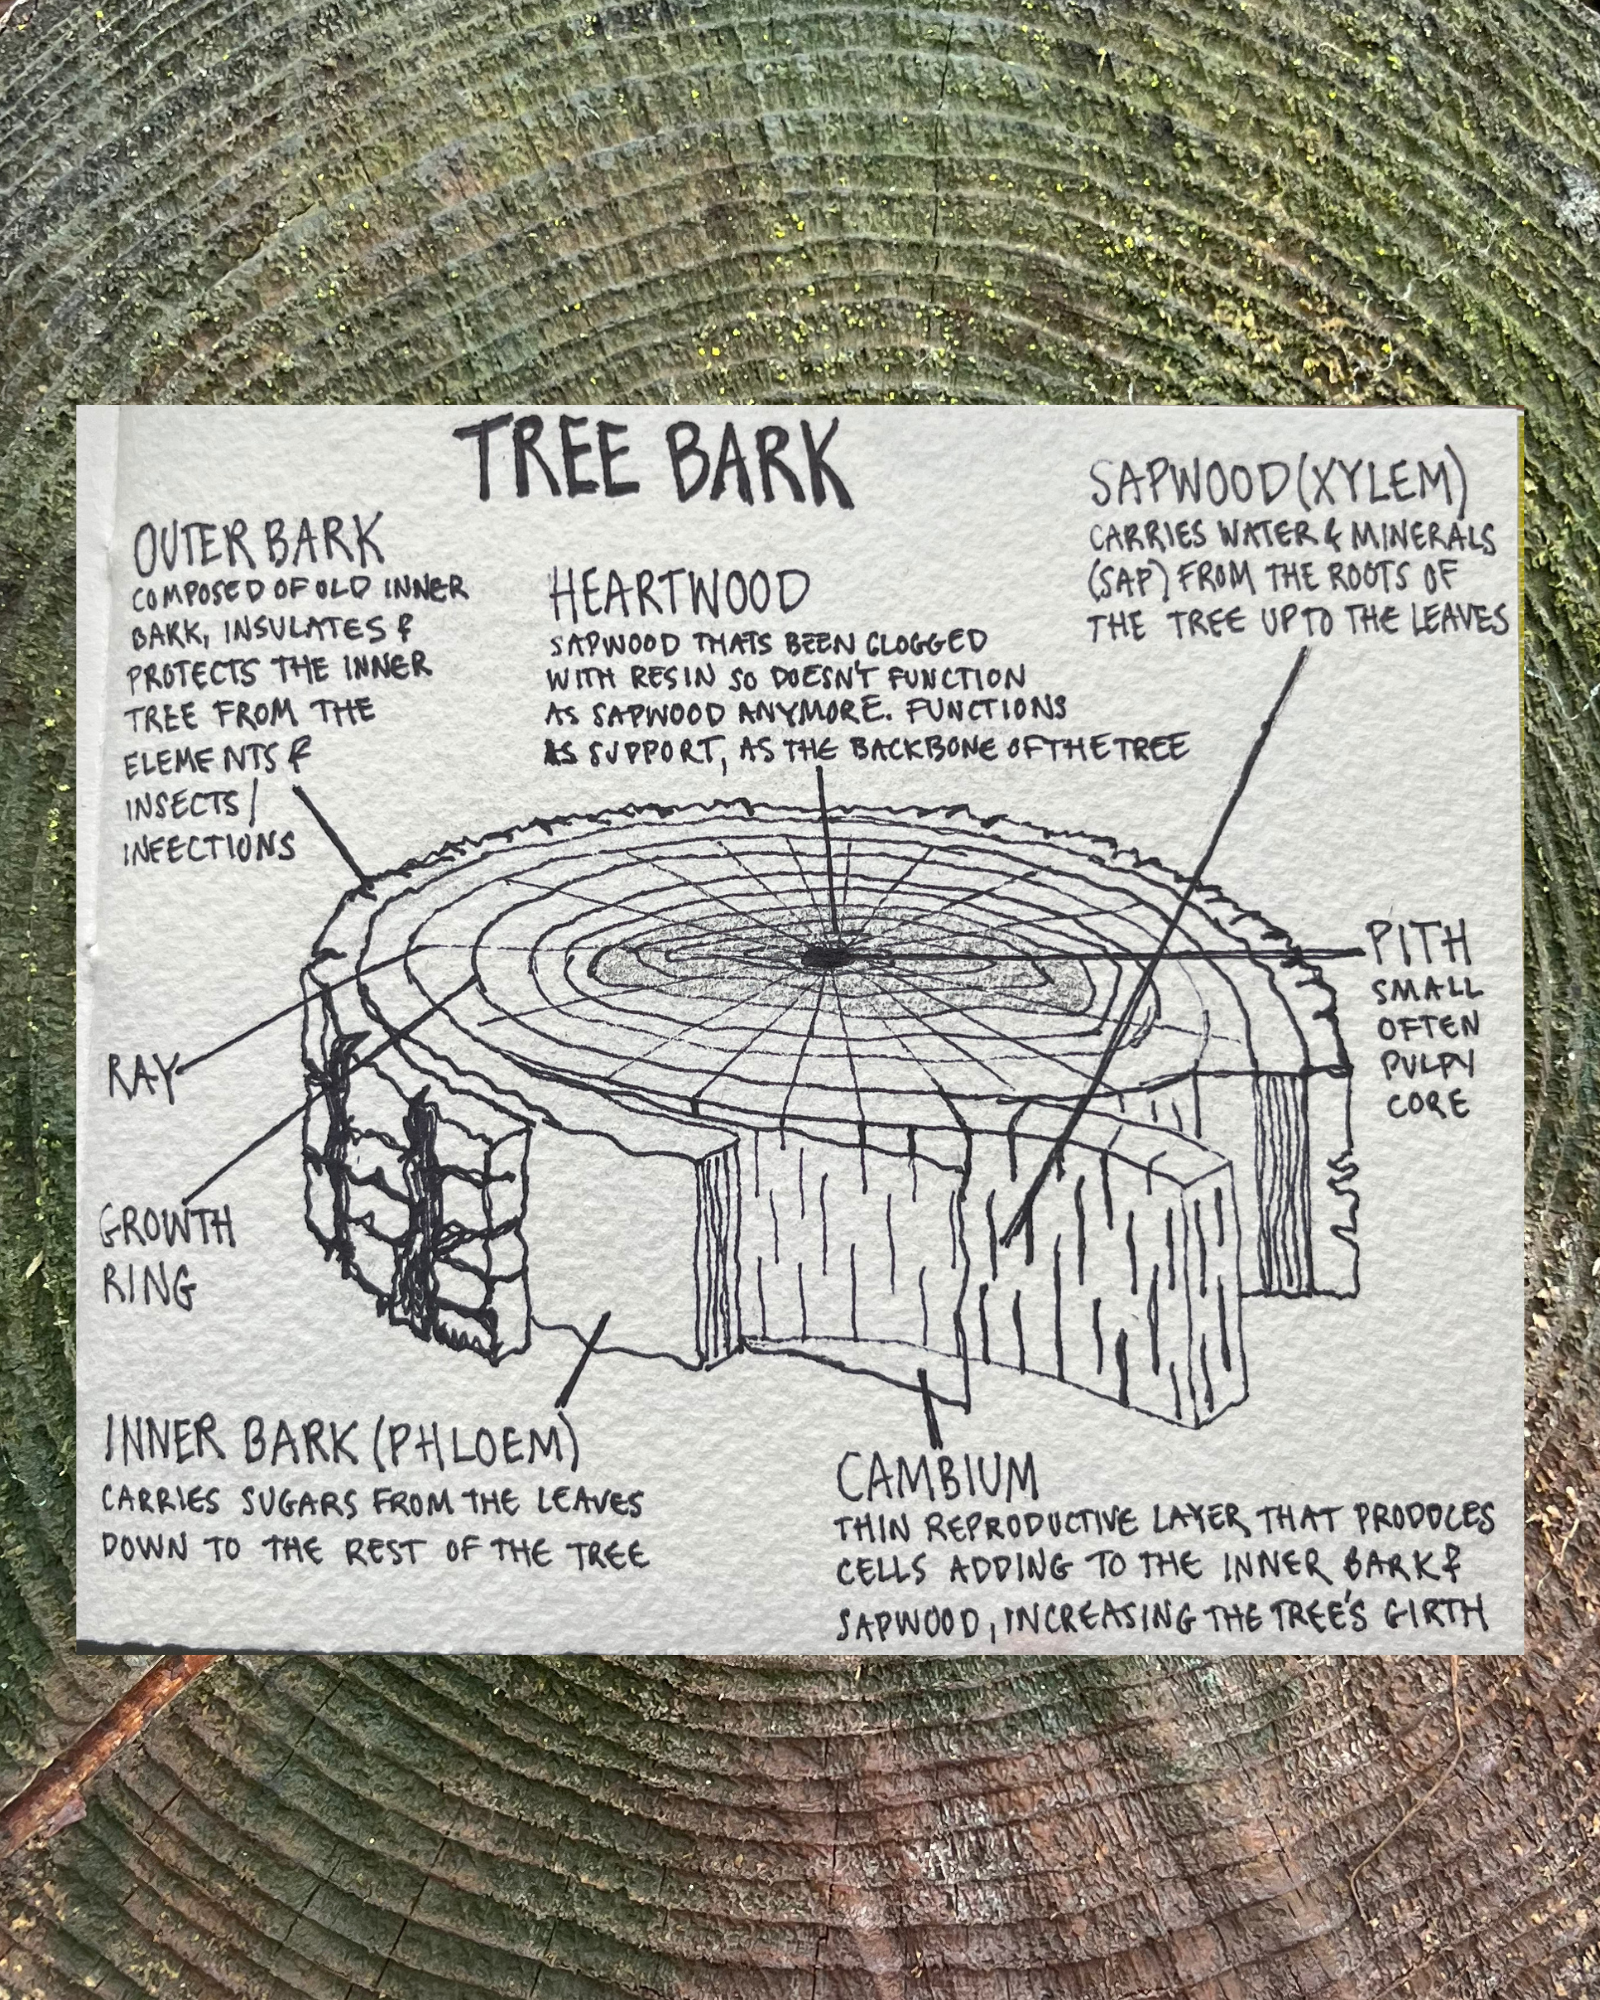 TREE BARK
OUTER BARK
COMPOSED OF OLD INNER
BARK, INSULATES &
PROTECTS THE INNER
TREE FROM THE
ELEMENTS &
INSECTS/
INFECTIONS
HEARTWOOD
SAPWOOD THATS BEEN CLOGGED
WITH RESIN SO DOESN'T FUNCTION
AS SAPWOOD ANYMORE. FUNCTIONS
AS SUPPORT, AS THE BACKBONE OF THE TREE
SAPWOOD (XYLEM)
CARRIES WATER & MINERALS
(SAP) FROM THE ROOTS OF
THE TREE UP TO THE LEAVES
PITH
SMALL
OFTEN
PULPY
CORE
RAY
GROWTH
RING
INNER BARK (PHLOEM)
CARRIES SUGARS FROM THE LEAVES
DOWN TO THE REST OF THE TREE
CAMBIUM
THIN REPRODUCTIVE LAYER THAT PRODUCES
CELLS ADDING TO THE INNER BARK &
SAPWOOD, INCREASING THE TREE'S GIRTH